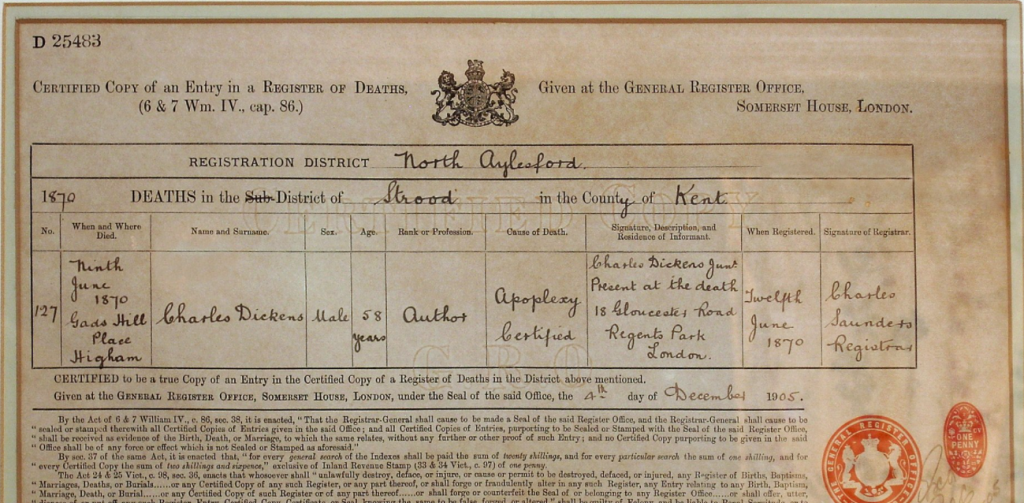 D 25483
CERTIFIED COPY of an Entry in a REGISTER OF DEATHS,
(6 & 7 Wm. IV., cap. 86.)
Given at the GENERAL REGISTER OFFICE,
SOMERSET HOUSE, LONDON.
REGISTRATION DISTRICT North Aylesford.
1870 DEATHS in the Sub-District of Strood in the County of Kent
No. When and Where Died. Name and Surname. Sex. Age. Rank or Profession. Cause of Death. Signature, Description, and Residence of Informant. When Registered. Signature of Registrar.
127
Ninth
June
1870
Gads Hill
Place
Higham
Charles Dickens
Male
58
years
Author
Apoplexy
Certified
Charles Dickens Junr
Present at the death
18 Gloucester Road
Regents Park
London.
Twelfth
June
1870
Charles
Saunders
Registrar
CERTIFIED COPY
G.R.O.
CERTIFIED to be a true Copy of an Entry in the Certified Copy of a Register of Deaths in the District above mentioned.
Given at the GENERAL REGISTER OFFICE, SOMERSET HOUSE, LONDON, under the Seal of the said Office, the 4th day of December 1905.
By the Act of 6 & 7 William IV., c. 86, sec. 38, it is enacted, "That the Registrar-General shall cause to be made a Seal of the said Register Office, and the Registrar-General shall cause to be
"sealed or stamped therewith all Certified Copies of Entries given in the said Office; and all Certified Copies of Entries, purporting to be Sealed or Stamped with the Seal of the said Register Office,
"shall be received as evidence of the Birth, Death, or Marriage, to which the same relates, without any further or other proof of such Entry; and no Certified Copy purporting to be given in the said
"Office shall be of any force or effect which is not Sealed or Stamped as aforesaid."
By sec. 37 of the same Act, it is enacted, that "for every general search of the Indexes shall be paid the sum of twenty shillings, and for every particular search the sum of one shilling, and for
"every Certified Copy the sum of two shillings and sixpence," exclusive of Inland Revenue Stamp (33 & 34 Vict., c. 97) of one penny.
The Act 24 & 25 Vict., c. 98, sec. 36, enacts that whosoever shall "unlawfully destroy, deface, or injure, or cause or permit to be destroyed, defaced, or injured, any Register of Births, Baptisms,
"Marriages, Deaths, or Burials......or any Certified Copy of any such Register, or any part thereof,......or shall forge or fraudulently alter in any such Register, any Entry relating to any Birth, Baptism,
"Marriage, Death, or Burial......or any Certified Copy of such Register or of any part thereof......or shall forge or counterfeit the Seal of or belonging to any Register Office......or shall offer, utter,
GENERAL REGISTER OFFICE
ONE
PENNY